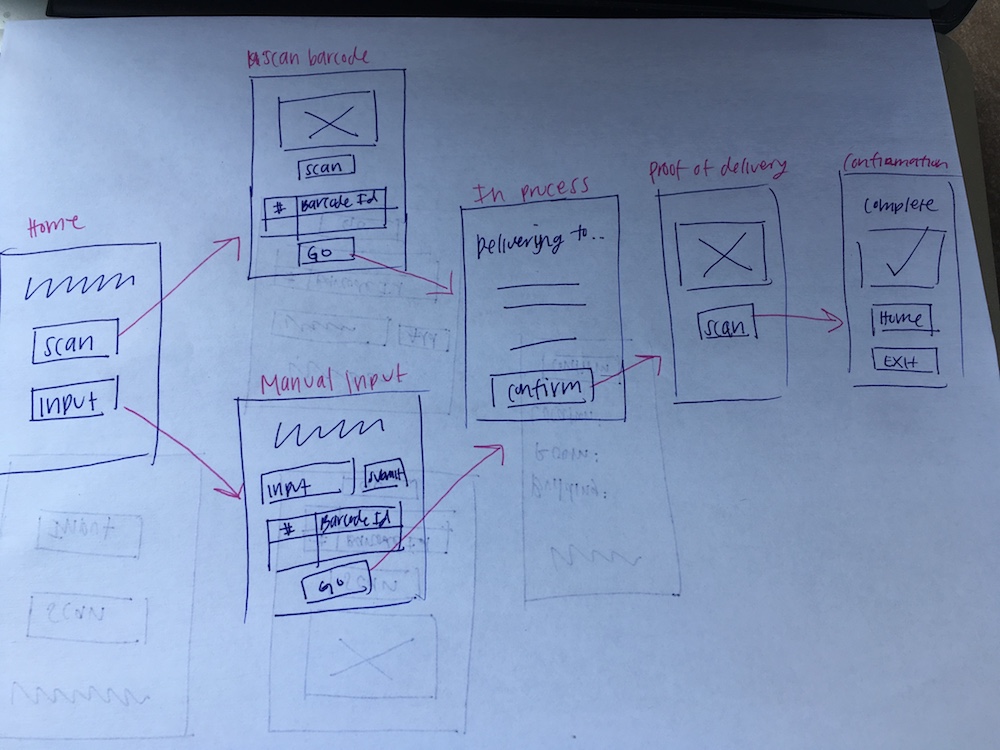 Home
scan
input
Scan barcode
scan
# Barcode Id
GO
Manual Input
input submit
# Barcode Id
GO
In process
Delivering to...
confirm
Proof of delivery
scan
Confirmation
complete
Home
EXIT